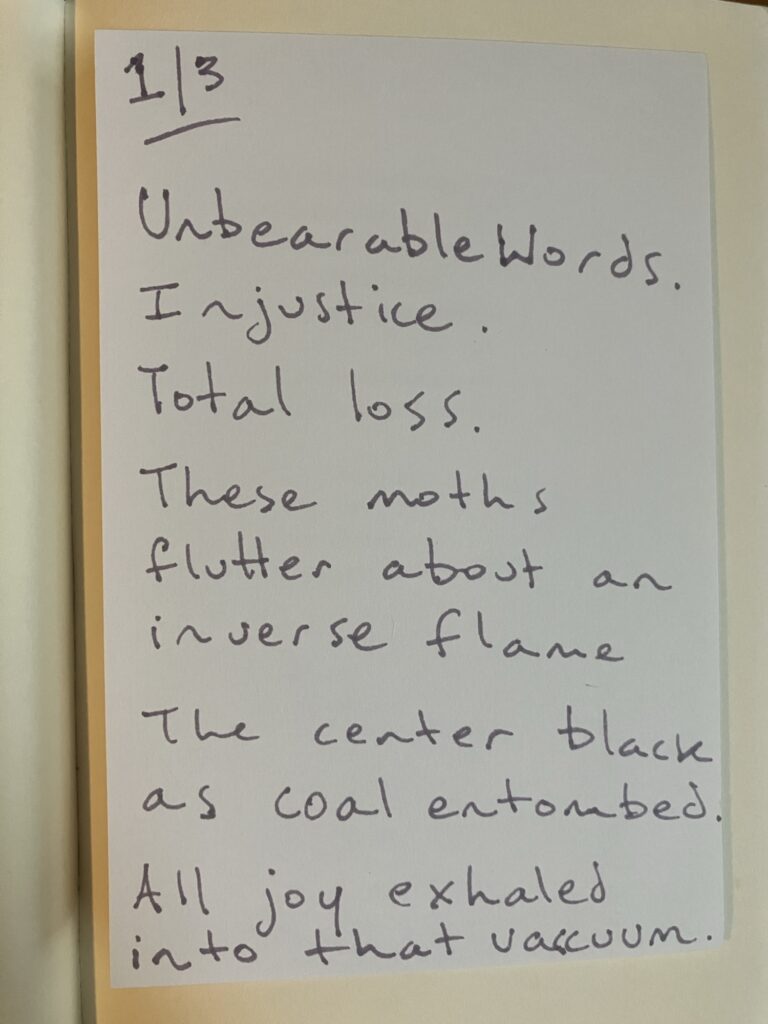 1/3
Unbearable Words.
Injustice.
Total loss.
These moths
flutter about an
inverse flame
The center black
as coal entombed.
All joy exhaled
into that vaccuum.